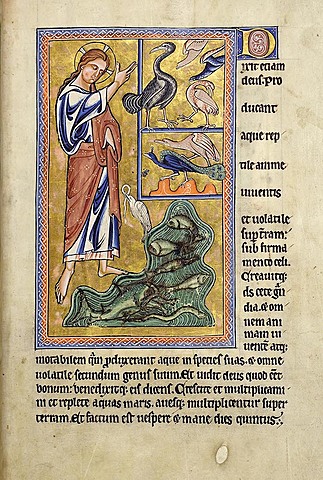 Dixit etiam
deus. Pro
ducant
aque rep
tile anime
uiuentis
et uolatile
sup t̄ram:
sub firma
mento celi.
Creauitq;
ds cete ḡn
dia. & om
nem ani
mam ui
uentē atq;
motabilem q̄m p̄duxerant aque in species suas. & omne
uolatile secundum genus suum. Et uidit deus quod eēt
bonum: benedixitq; eis dicens. Crescite & multiplicami
ni et replete aquas maris. auesq; multiplicentur super
terram. Et factum est uespere & mane dies quintus.